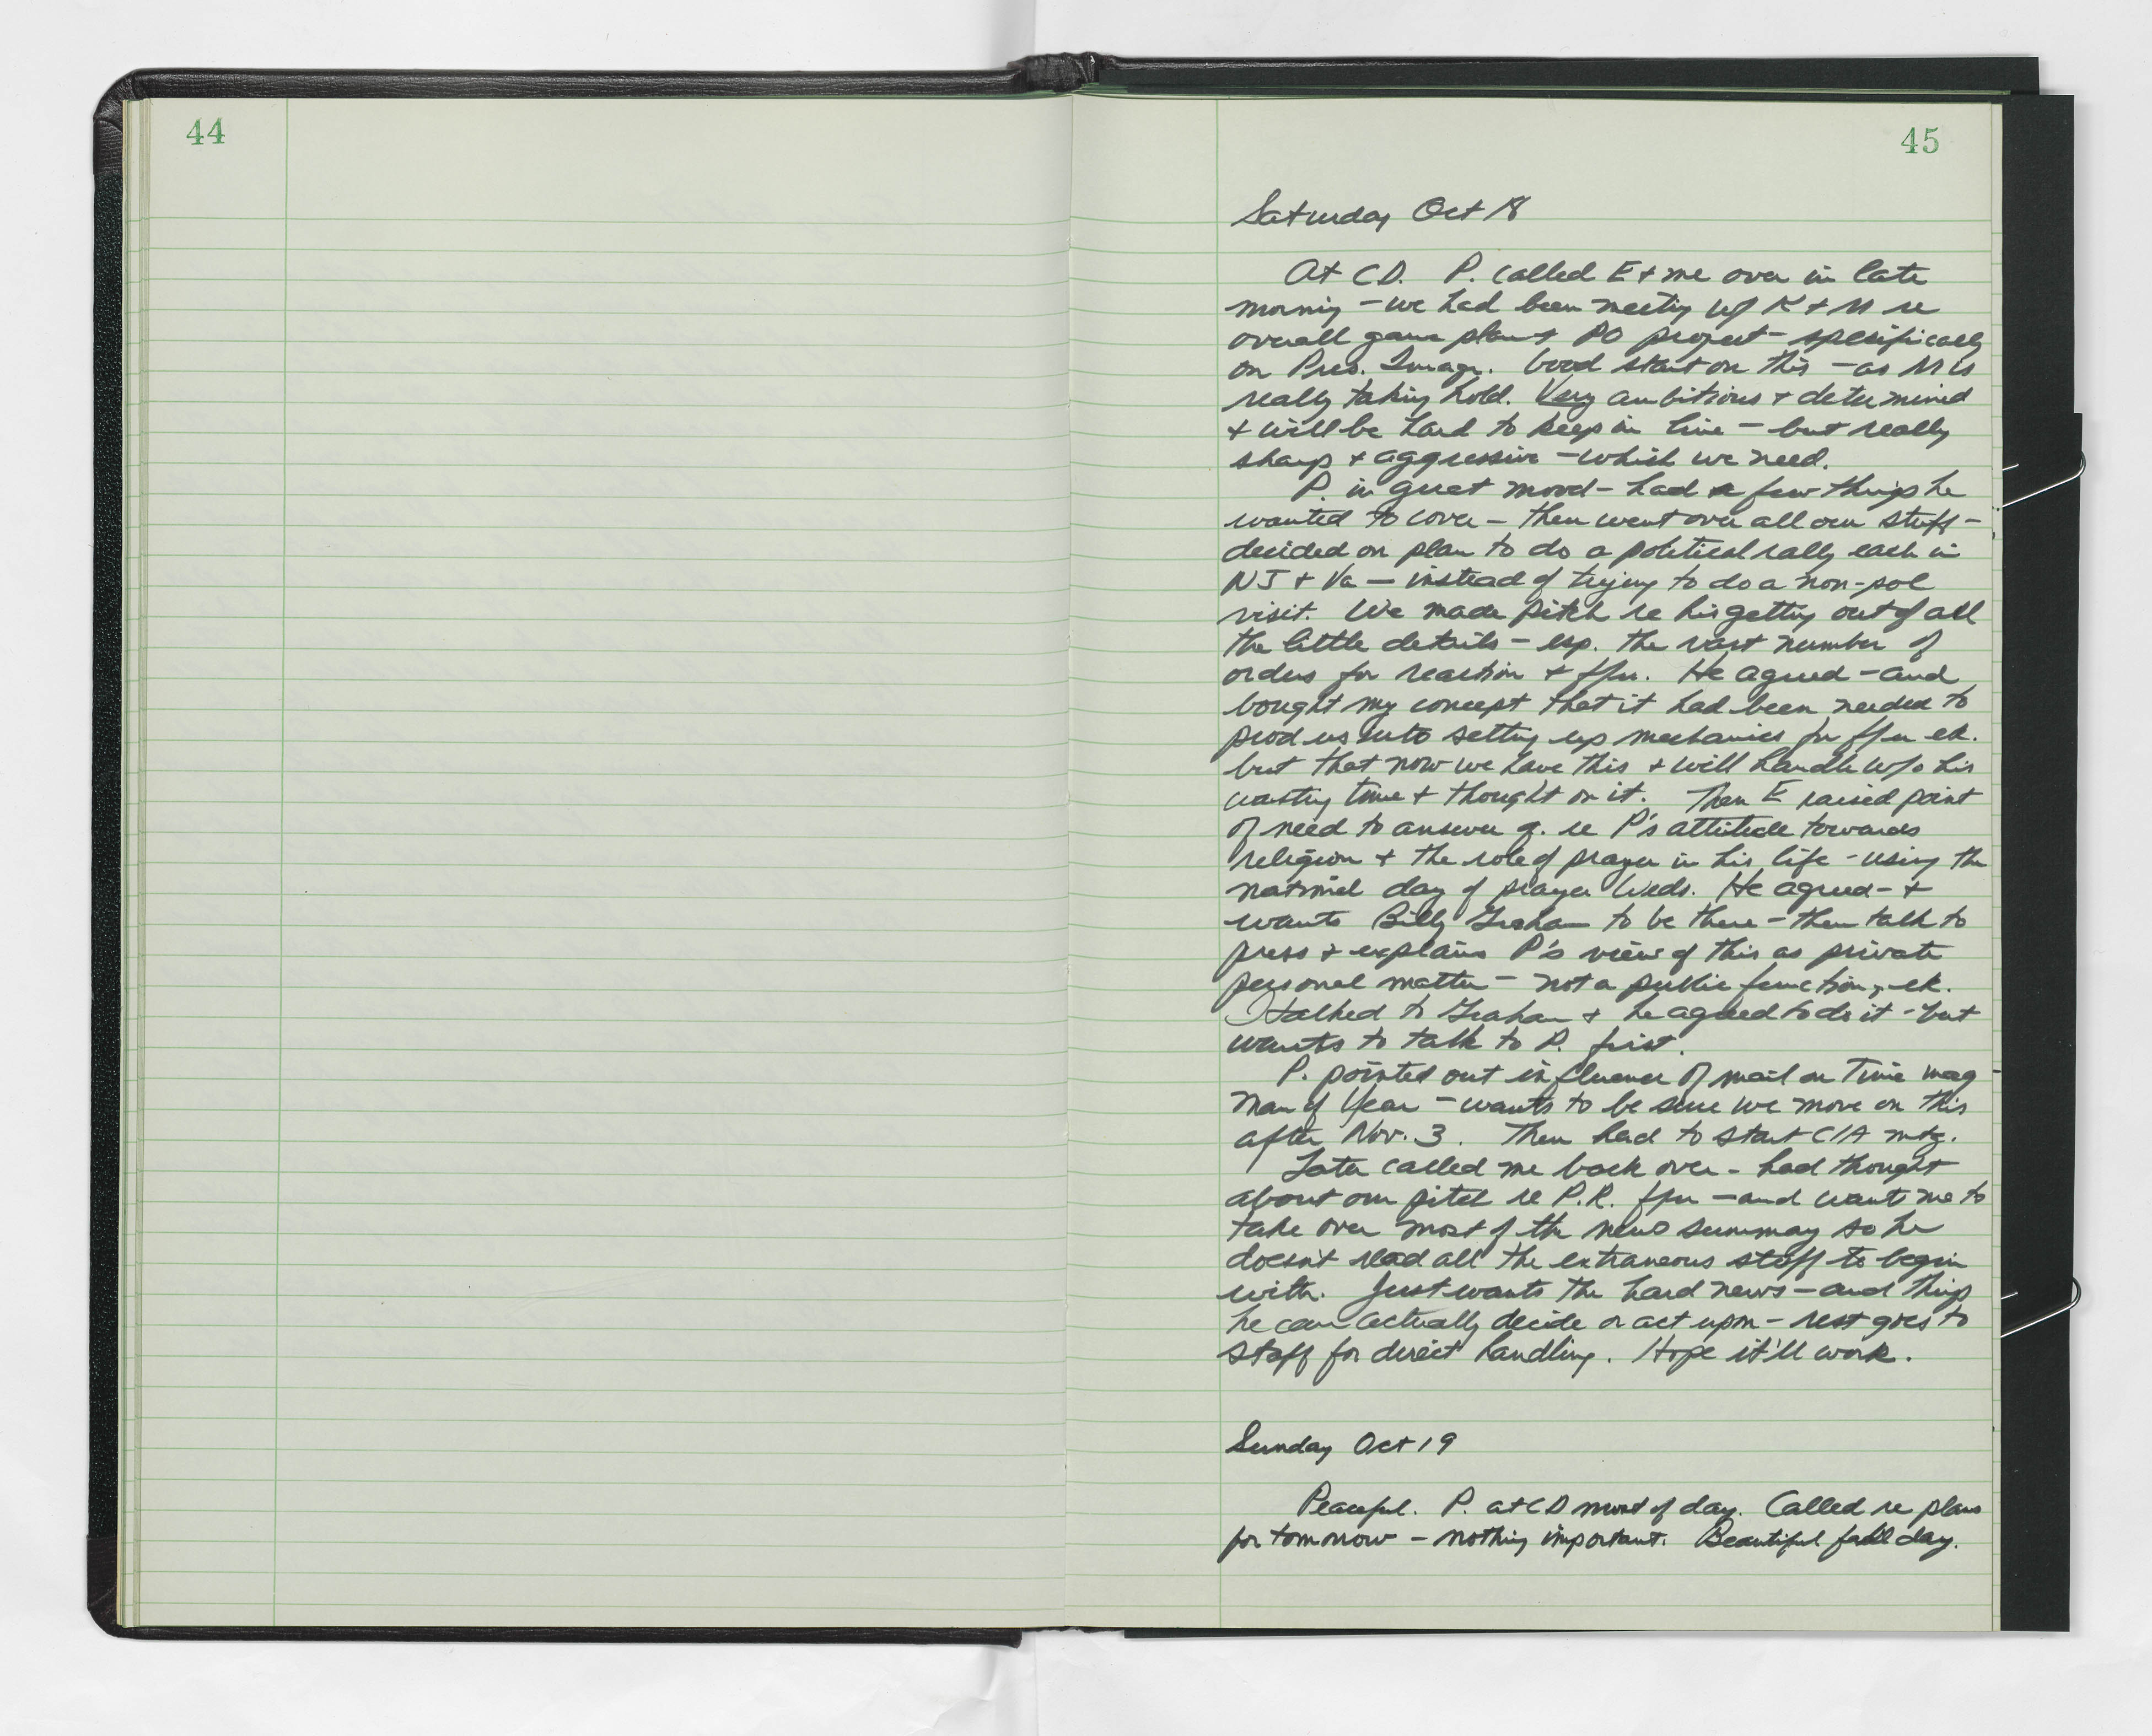 44
45
Saturday Oct 18
At CD. P. called E + me over in late
morning - we had been meeting w/ K + M re
overall game plan + PO project - specifically
on Pres. Image. Good start on this - as M is
really taking hold. Very ambitious + determined
+ will be hard to keep in line - but really
sharp + aggressive - which we need.
P. in great mood - had a few things he
wanted to cover - then went over all our stuff -
decided on plan to do a political rally each in
NJ + Va - instead of trying to do a non-pol
visit. We made pitch re his getting out of all
the little details - esp. the vast number of
orders for reaction + ffu. He agreed - and
bought my concept that it had been needed to
prod us into setting up mechanics for ffu etc.
but that now we have this + will handle w/o his
wasting time + thought on it. Then E raised point
of need to answer q. re P's attitude towards
religion + the role of prayer in his life - using the
national day of prayer Weds. He agreed - +
wants Billy Graham to be there - then talk to
press + explain P's view of this as private
personal matter - not a public function, etc.
I talked to Graham + he agreed to do it - but
wants to talk to P. first.
P. pointed out influence of mail on Time mag
Man of Year - wants to be sure we move on this
after Nov. 3. Then had to start CIA mtg.
Later called me back over - had thought
about our pitch re P.R. ffu - and wants me to
take over most of the news summary so he
doesn't read all the extraneous stuff to begin
with. Just wants the hard news - and things
he can actually decide or act upon - rest goes to
staff for direct handling. Hope it'll work.
Sunday Oct 19
Peaceful. P. at CD most of day. Called re plans
for tomorrow - nothing important. Beautiful fall day.